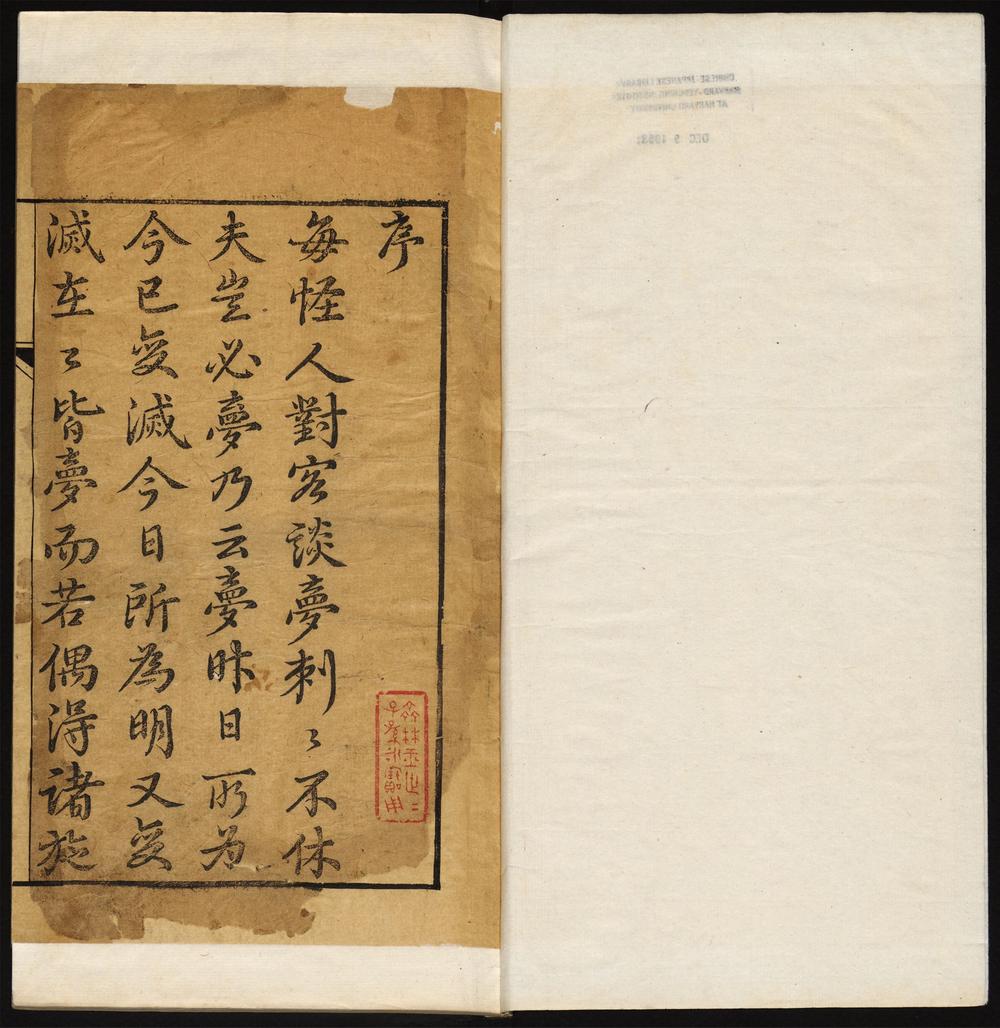 CHINESE JAPANESE LIBRARY
HARVARD-YENCHING INSTITUTE
AT HARVARD UNIVERSITY
序
每怪人對客談夢刺〻不休
夫豈必夢乃云夢昨日所為
今已变滅今日所為明又变
滅在〻皆夢而若偶淂諸旋